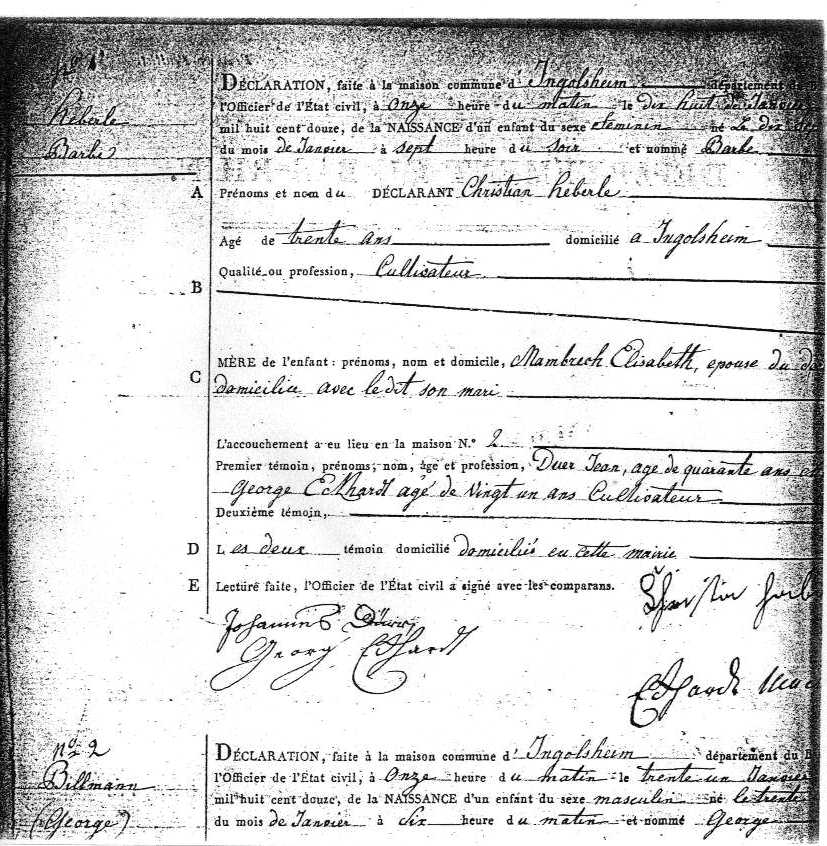 nº 1
Heberle
Barbe
DÉCLARATION, faite à la maison commune d' Ingolsheim département du
l'Officier de l'État civil, à Onze heure du matin le dix huit de Janvier
mil huit cent douze, de la NAISSANCE d'un enfant du sexe feminin né Le dix
du mois de Janvier à sept heure du soir et nommé Barbe
A Prénoms et nom du DÉCLARANT Christian heberle
Agé de trente ans domicilié a Ingolsheim
Qualité ou profession, Cultivateur
B
C MÈRE de l'enfant : prénoms, nom et domicile, Mambrech Elisabeth, epouse du
domiciliée avec le dit son mari
L'accouchement a eu lieu en la maison N.º 2
Premier témoin, prénoms, nom, âge et profession, Duer Jean, age de quarante ans
George Eckhardt agé de vingt un ans Cultivateur
Deuxième témoin,
D Les deux témoin domicilié domiciliés en cette mairie
E Lecture faite, l'Officier de l'État civil a signé avec les comparans.
Johannes Dürr
Georg Ekhardt
Ekhardt
nº 2
Billmann
(George)
DÉCLARATION, faite à la maison commune d' Ingolsheim département du B
l'Officier de l'État civil, à Onze heure du matin le trente un Janvier
mil huit cent douze, de la NAISSANCE d'un enfant du sexe masculin né le trente
du mois de Janvier à Six heure du matin et nommé George